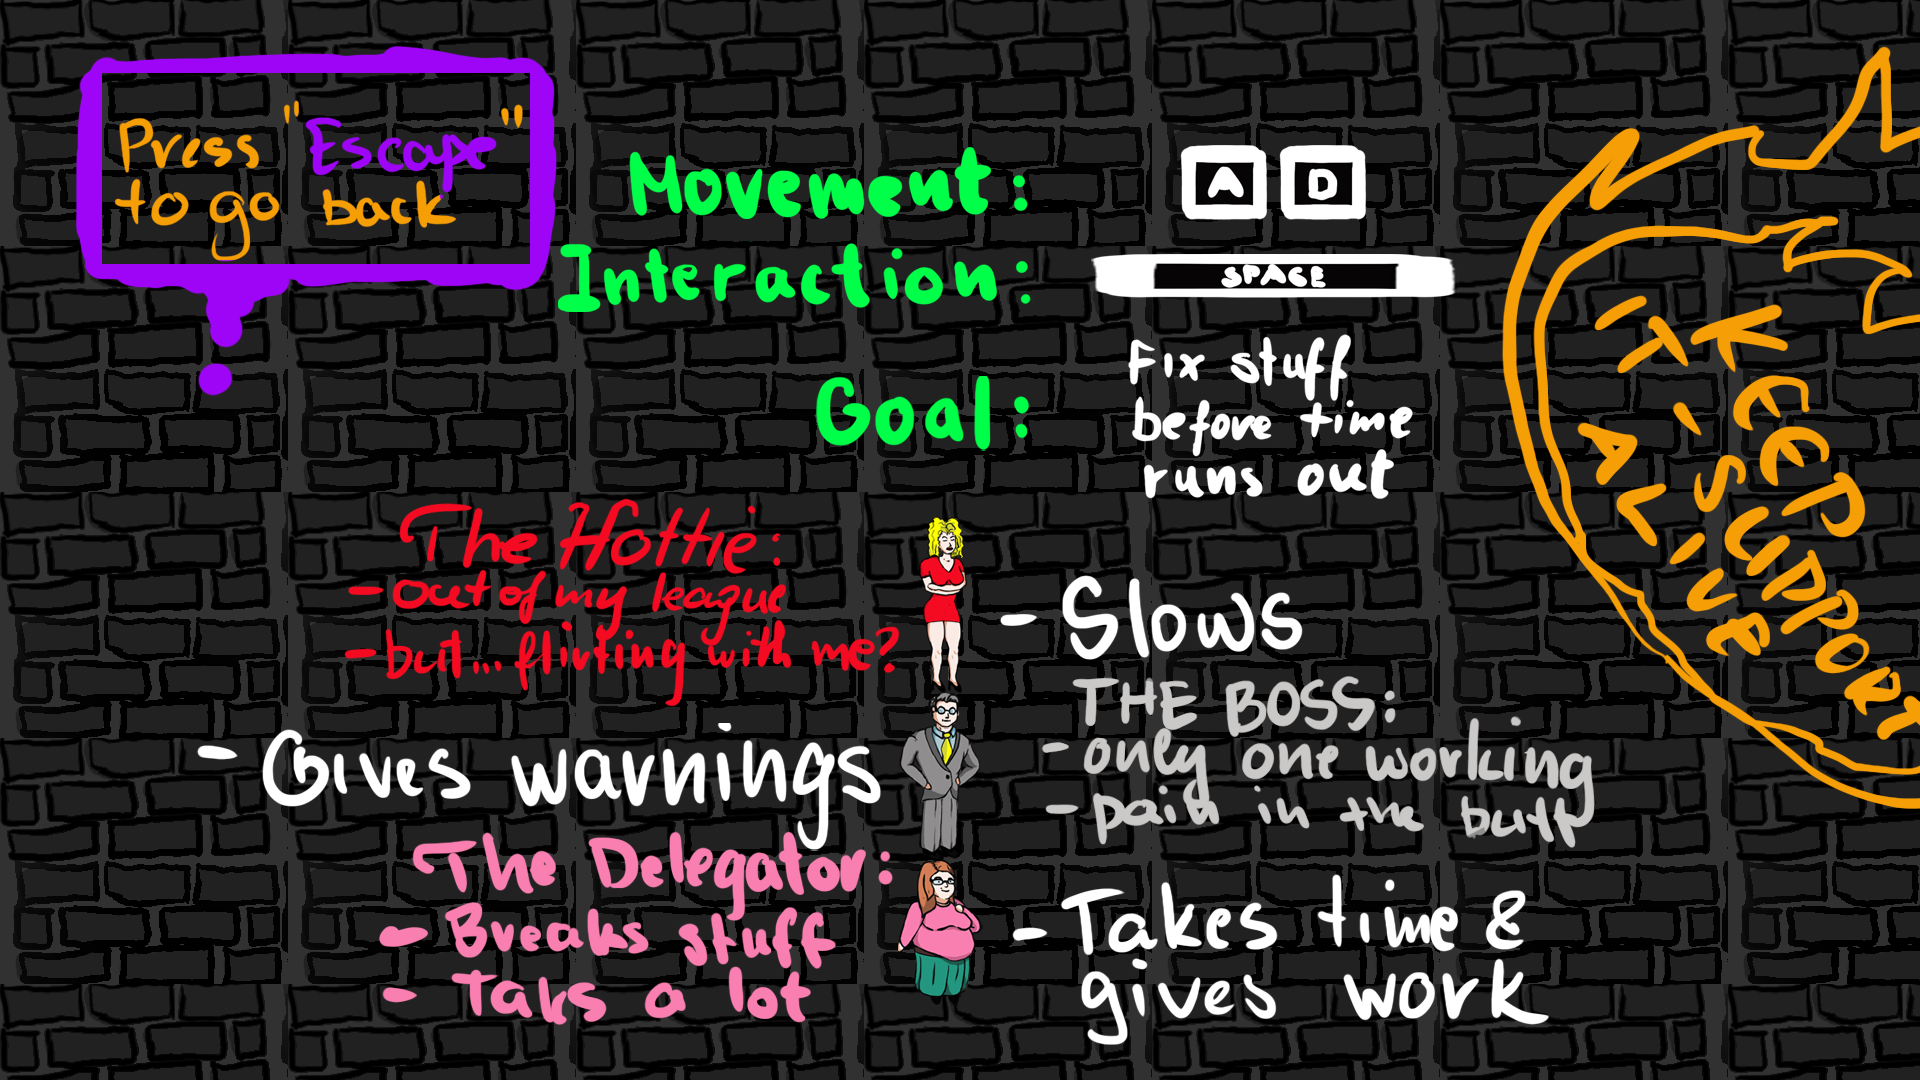 Press "Escape"
to go back
Movement:
A D
Interaction:
SPACE
Goal:
Fix stuff
before time
runs out
The Hottie:
- out of my league
- but... flirting with me?
- Slows
THE BOSS:
- only one working
- pain in the butt
- Gives warnings
The Delegator:
- Breaks stuff
- Taks a lot
- Takes time &
gives work
KEEP
IT-SUPPORT
ALIVE